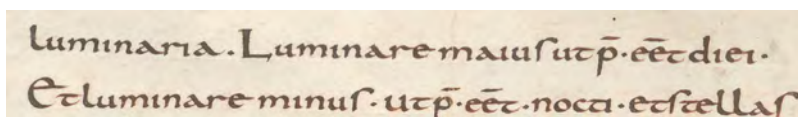 luminaria. Luminare maiuſ ut p̄·eēt diei·
Et luminare minuſ· ut p̄·eēt·nocti·et ſtellaſ